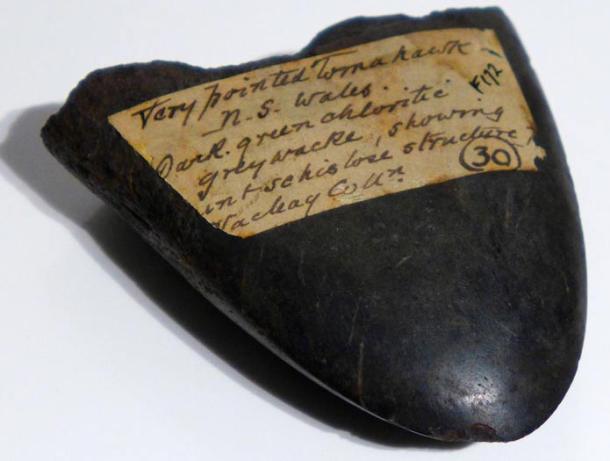 Very pointed Tomahawk
N. S. Wales.
Dark green chloritic
greywacke, showing
schistose structure
Macleay Colln
F172
30